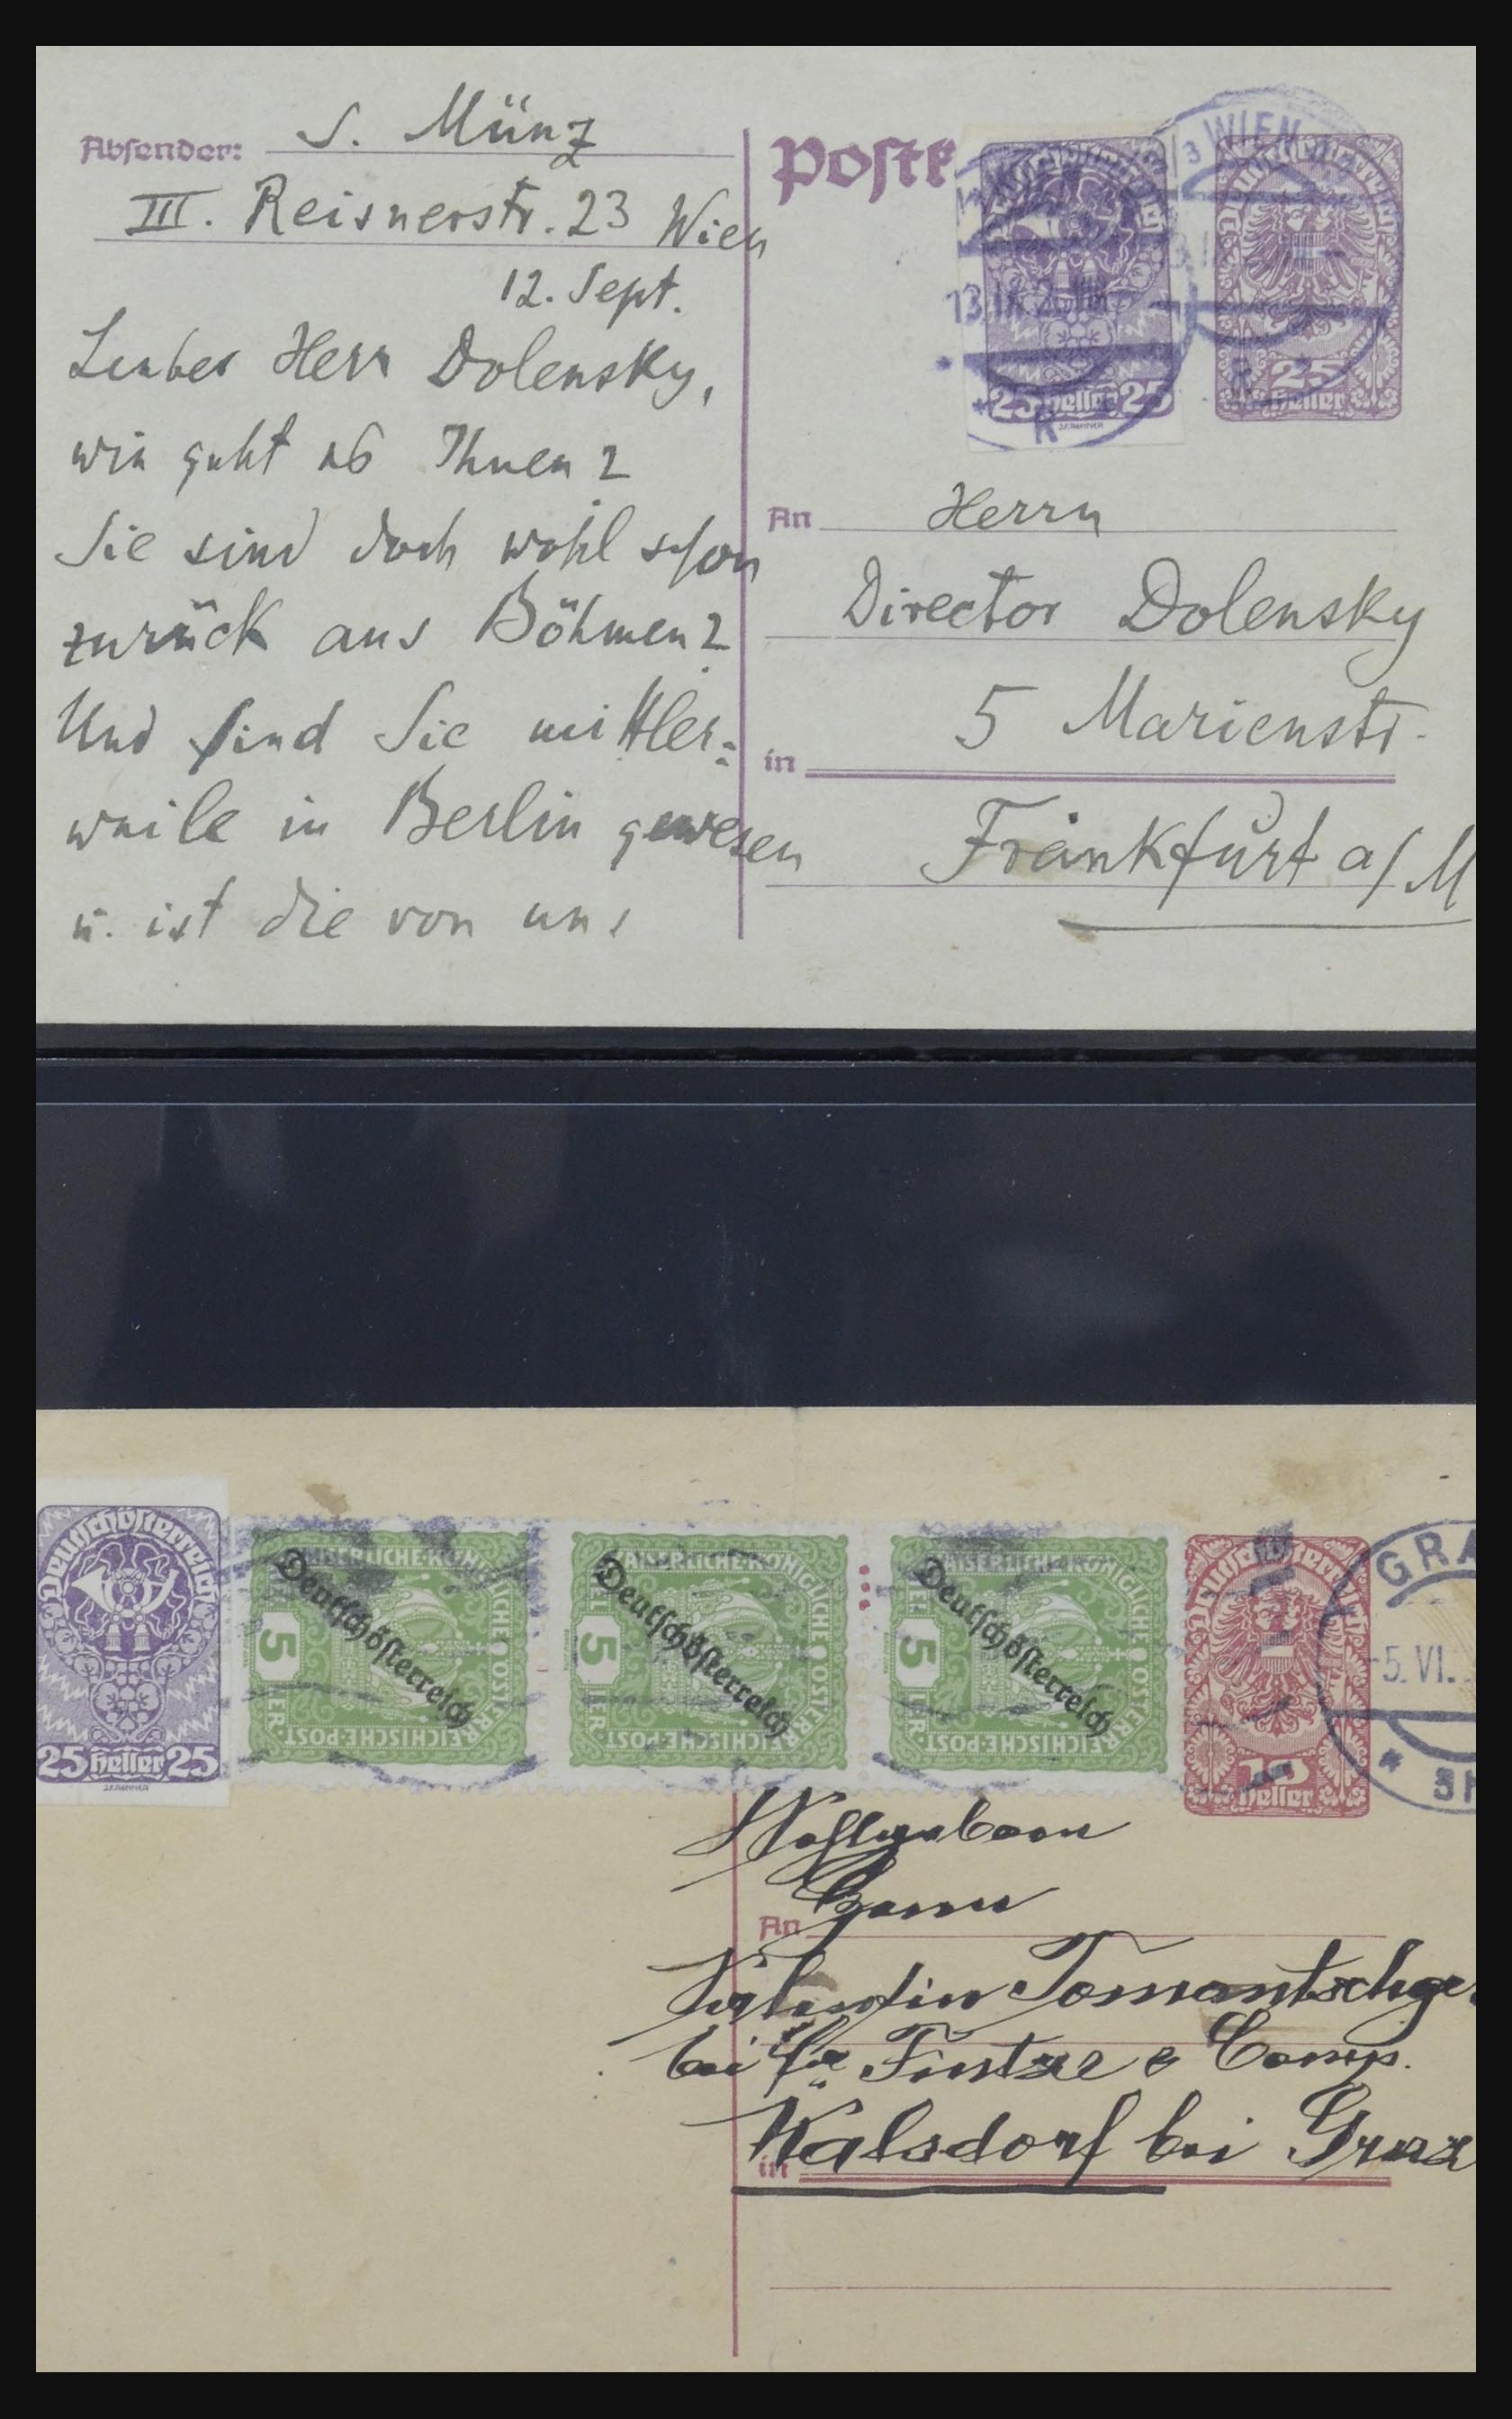 Absender: S. Münz
III. Reisnerstr. 23 Wien
12. Sept.
Lieber Herr Dolensky,
wie geht es Ihnen?
Sie sind doch wohl schon
zurück aus Böhmen?
Und sind Sie mittler=
weile in Berlin gewesen
u. ist die von uns
Postk
Deutschösterreich
25 Heller 25
J.F. RENNER
25
Heller
3 WIEN
13.IX.2
An Herrn
Director Dolensky
5 Marienstr.
in
Frankfurt a/M
Deutschösterreich
25 Heller 25
J.F. RENNER
KAISERLICHE KÖNIGLICHE ÖSTERREICHISCHE POST
5 HELLER
Deutschösterreich
KAISERLICHE KÖNIGLICHE ÖSTERREICHISCHE POST
5 HELLER
Deutschösterreich
KAISERLICHE KÖNIGLICHE ÖSTERREICHISCHE POST
5 HELLER
Deutschösterreich
Deutschösterreich
Heller
GRA
5.VI.
Wohlgeboren
Herrn
An
Valentin Tomantschge
bei Fa
& Comp.
Kalsdorf bei Graz
in